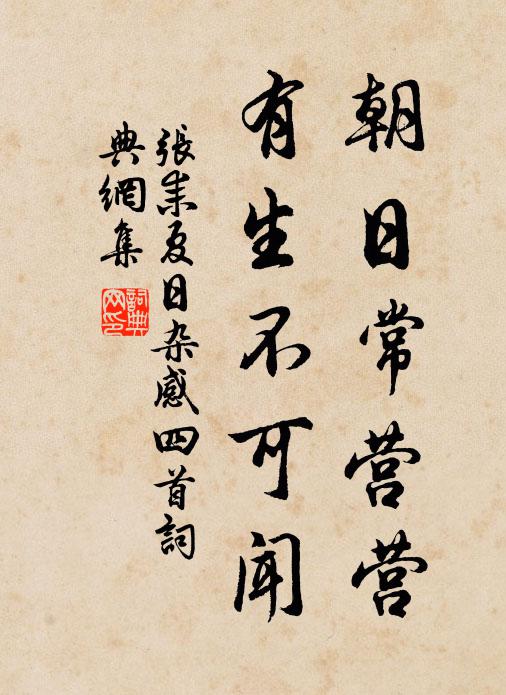 朝日常营营
有生不可闻
張耒夏日杂感四首詞
典網集
詞典
网印